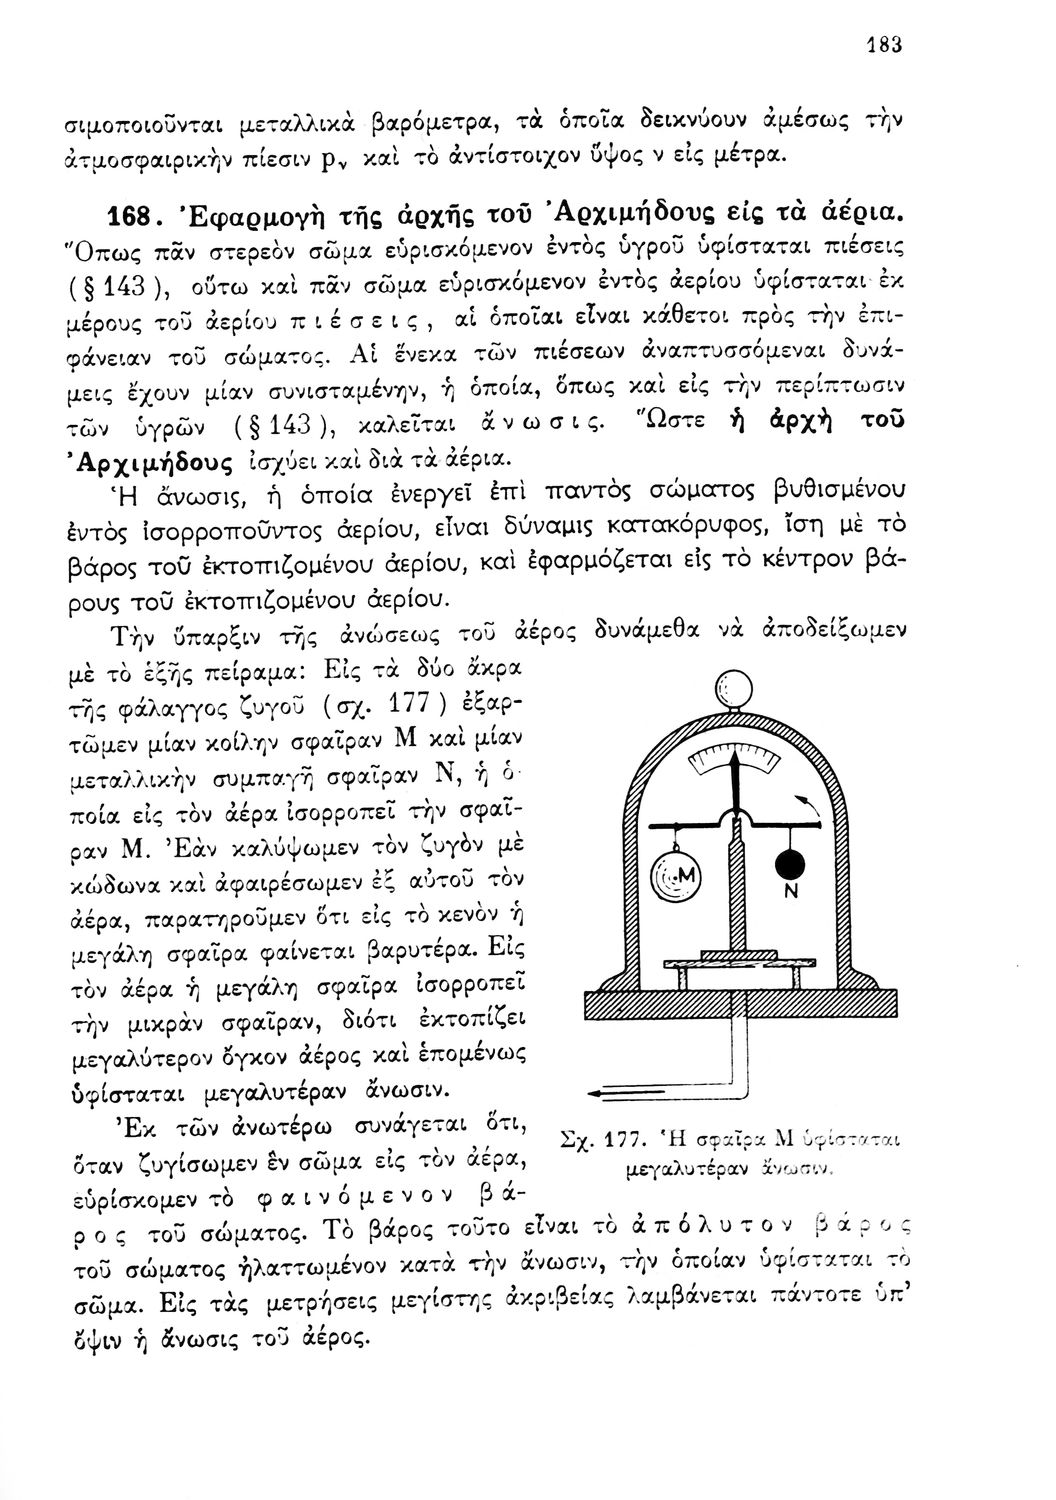 183
σιμοποιοῦνται μεταλλικὰ βαρόμετρα, τὰ ὁποῖα δεικνύουν ἀμέσως τὴν
ἀτμοσφαιρικὴν πίεσιν pᵥ καὶ τὸ ἀντίστοιχον ὕψος ν εἰς μέτρα.
168. Ἐφαρμογὴ τῆς ἀρχῆς τοῦ Ἀρχιμήδους εἰς τὰ ἀέρια.
Ὅπως πᾶν στερεὸν σῶμα εὑρισκόμενον ἐντὸς ὑγροῦ ὑφίσταται πιέσεις
( § 143 ), οὕτω καὶ πᾶν σῶμα εὑρισκόμενον ἐντὸς ἀερίου ὑφίσταται ἐκ
μέρους τοῦ ἀερίου π ι έ σ ε ι ς , αἱ ὁποῖαι εἶναι κάθετοι πρὸς τὴν ἐπι-
φάνειαν τοῦ σώματος. Αἱ ἕνεκα τῶν πιέσεων ἀναπτυσσόμεναι δυνά-
μεις ἔχουν μίαν συνισταμένην, ἡ ὁποία, ὅπως καὶ εἰς τὴν περίπτωσιν
τῶν ὑγρῶν ( § 143 ), καλεῖται ἄ ν ω σ ι ς. Ὥστε ἡ ἀρχὴ τοῦ
Ἀρχιμήδους ἰσχύει καὶ διὰ τὰ ἀέρια.
Ἡ ἄνωσις, ἡ ὁποία ἐνεργεῖ ἐπὶ παντὸς σώματος βυθισμένου
ἐντὸς ἰσορροποῦντος ἀερίου, εἶναι δύναμις κατακόρυφος, ἴση μὲ τὸ
βάρος τοῦ ἐκτοπιζομένου ἀερίου, καὶ ἐφαρμόζεται εἰς τὸ κέντρον βά-
ρους τοῦ ἐκτοπιζομένου ἀερίου.
Τὴν ὕπαρξιν τῆς ἀνώσεως τοῦ ἀέρος δυνάμεθα νὰ ἀποδείξωμεν
μὲ τὸ ἑξῆς πείραμα: Εἰς τὰ δύο ἄκρα
τῆς φάλαγγος ζυγοῦ ( σχ. 177 ) ἐξαρ-
τῶμεν μίαν κοίλην σφαῖραν Μ καὶ μίαν
μεταλλικὴν συμπαγῆ σφαῖραν Ν, ἡ ὁ-
ποία εἰς τὸν ἀέρα ἰσορροπεῖ τὴν σφαῖ-
ραν Μ. Ἐὰν καλύψωμεν τὸν ζυγὸν μὲ
κώδωνα καὶ ἀφαιρέσωμεν ἐξ αὐτοῦ τὸν
ἀέρα, παρατηροῦμεν ὅτι εἰς τὸ κενὸν ἡ
μεγάλη σφαῖρα φαίνεται βαρυτέρα. Εἰς
τὸν ἀέρα ἡ μεγάλη σφαῖρα ἰσορροπεῖ
τὴν μικρὰν σφαῖραν, διότι ἐκτοπίζει
μεγαλύτερον ὄγκον ἀέρος καὶ ἑπομένως
ὑφίσταται μεγαλυτέραν ἄνωσιν.
M
N
Σχ. 177. Ἡ σφαῖρα Μ ὑφίσταται
μεγαλυτέραν ἄνωσιν.
Ἐκ τῶν ἀνωτέρω συνάγεται ὅτι,
ὅταν ζυγίσωμεν ἓν σῶμα εἰς τὸν ἀέρα,
εὑρίσκομεν τὸ φ α ι ν ό μ ε ν ο ν β ά-
ρ ο ς τοῦ σώματος. Τὸ βάρος τοῦτο εἶναι τὸ ἀ π ό λ υ τ ο ν β ά ρ ο ς
τοῦ σώματος ἠλαττωμένον κατὰ τὴν ἄνωσιν, τὴν ὁποίαν ὑφίσταται τὸ
σῶμα. Εἰς τὰς μετρήσεις μεγίστης ἀκριβείας λαμβάνεται πάντοτε ὑπ’
ὄψιν ἡ ἄνωσις τοῦ ἀέρος.